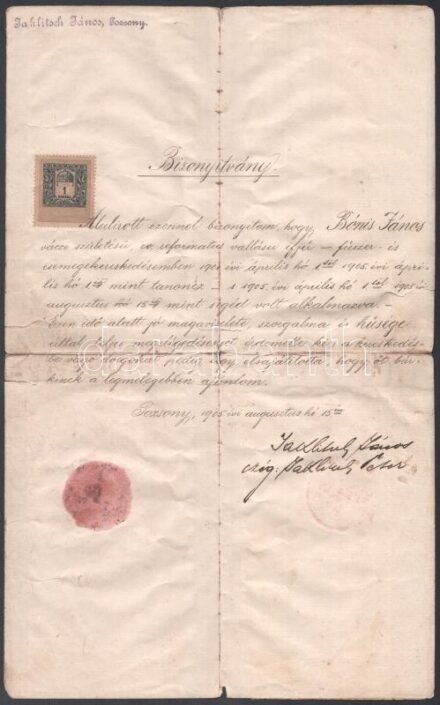 Jaklitsch János, Pozsony.
Bizonyitvány.
1
Alulirott ezennel bizonyitom, hogy, Bónis János
váczi születésü, ev. reformatus vallásu ifju – füszer - és
csemegekereskedésemben 1902 évi április hó 1től 1905. évi ápri-
lis hó 1éig mint tanoncz – s 1905. évi április hó 1től 1905 évi
augusztus hó 15éig mint segéd volt alkalmazva. –
Ezen idő alatt jó magaviselete, szorgalma és hüsége
által teljes megelégedésemet érdemelte ki s a kereskedés-
be vágó dolgokat pedig ugy elsajátitotta, hogy őt bár-
kinek a legmelegebben ajánlom.
Pozsony, 1905 évi augusztus hó 15én
Jaklitsch János
czég: Jaklitsch Péter
darabanth
www.darabanth.com